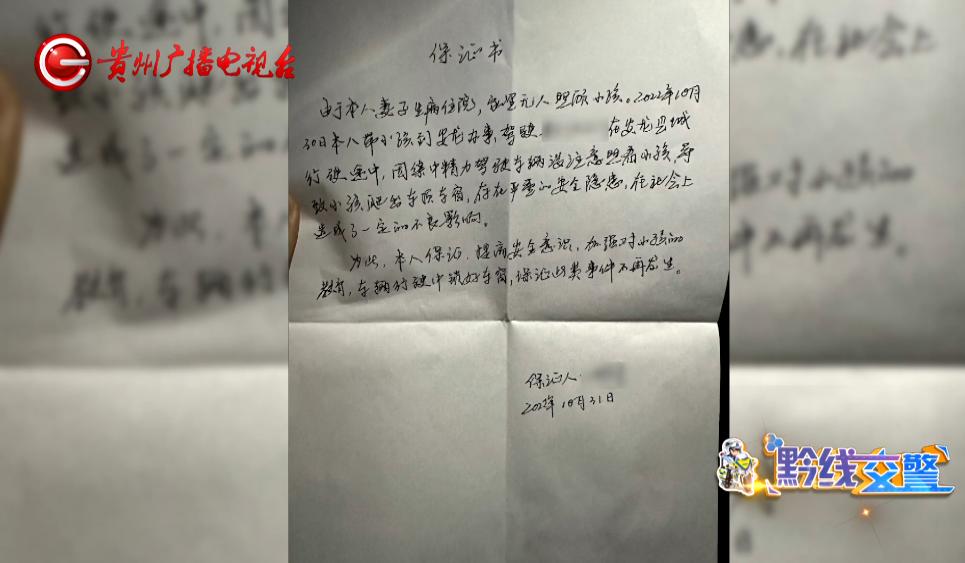 贵州广播电视台
保证书
由于本人妻子生病住院,家里无人照顾小孩。2022年10月
30日本人带小孩到安龙办事,驾驶 在安龙县城
行驶途中,因集中精力驾驶车辆没注意照看小孩,导
致小孩爬出车顶车窗,存在严重的安全隐患,在社会上
造成了一定的不良影响。
为此,本人保证,提高安全意识,加强对小孩的
教育,车辆行驶中锁好车窗,保证此类事件不再发生。
保证人:
2022年10月31日
黔线交警